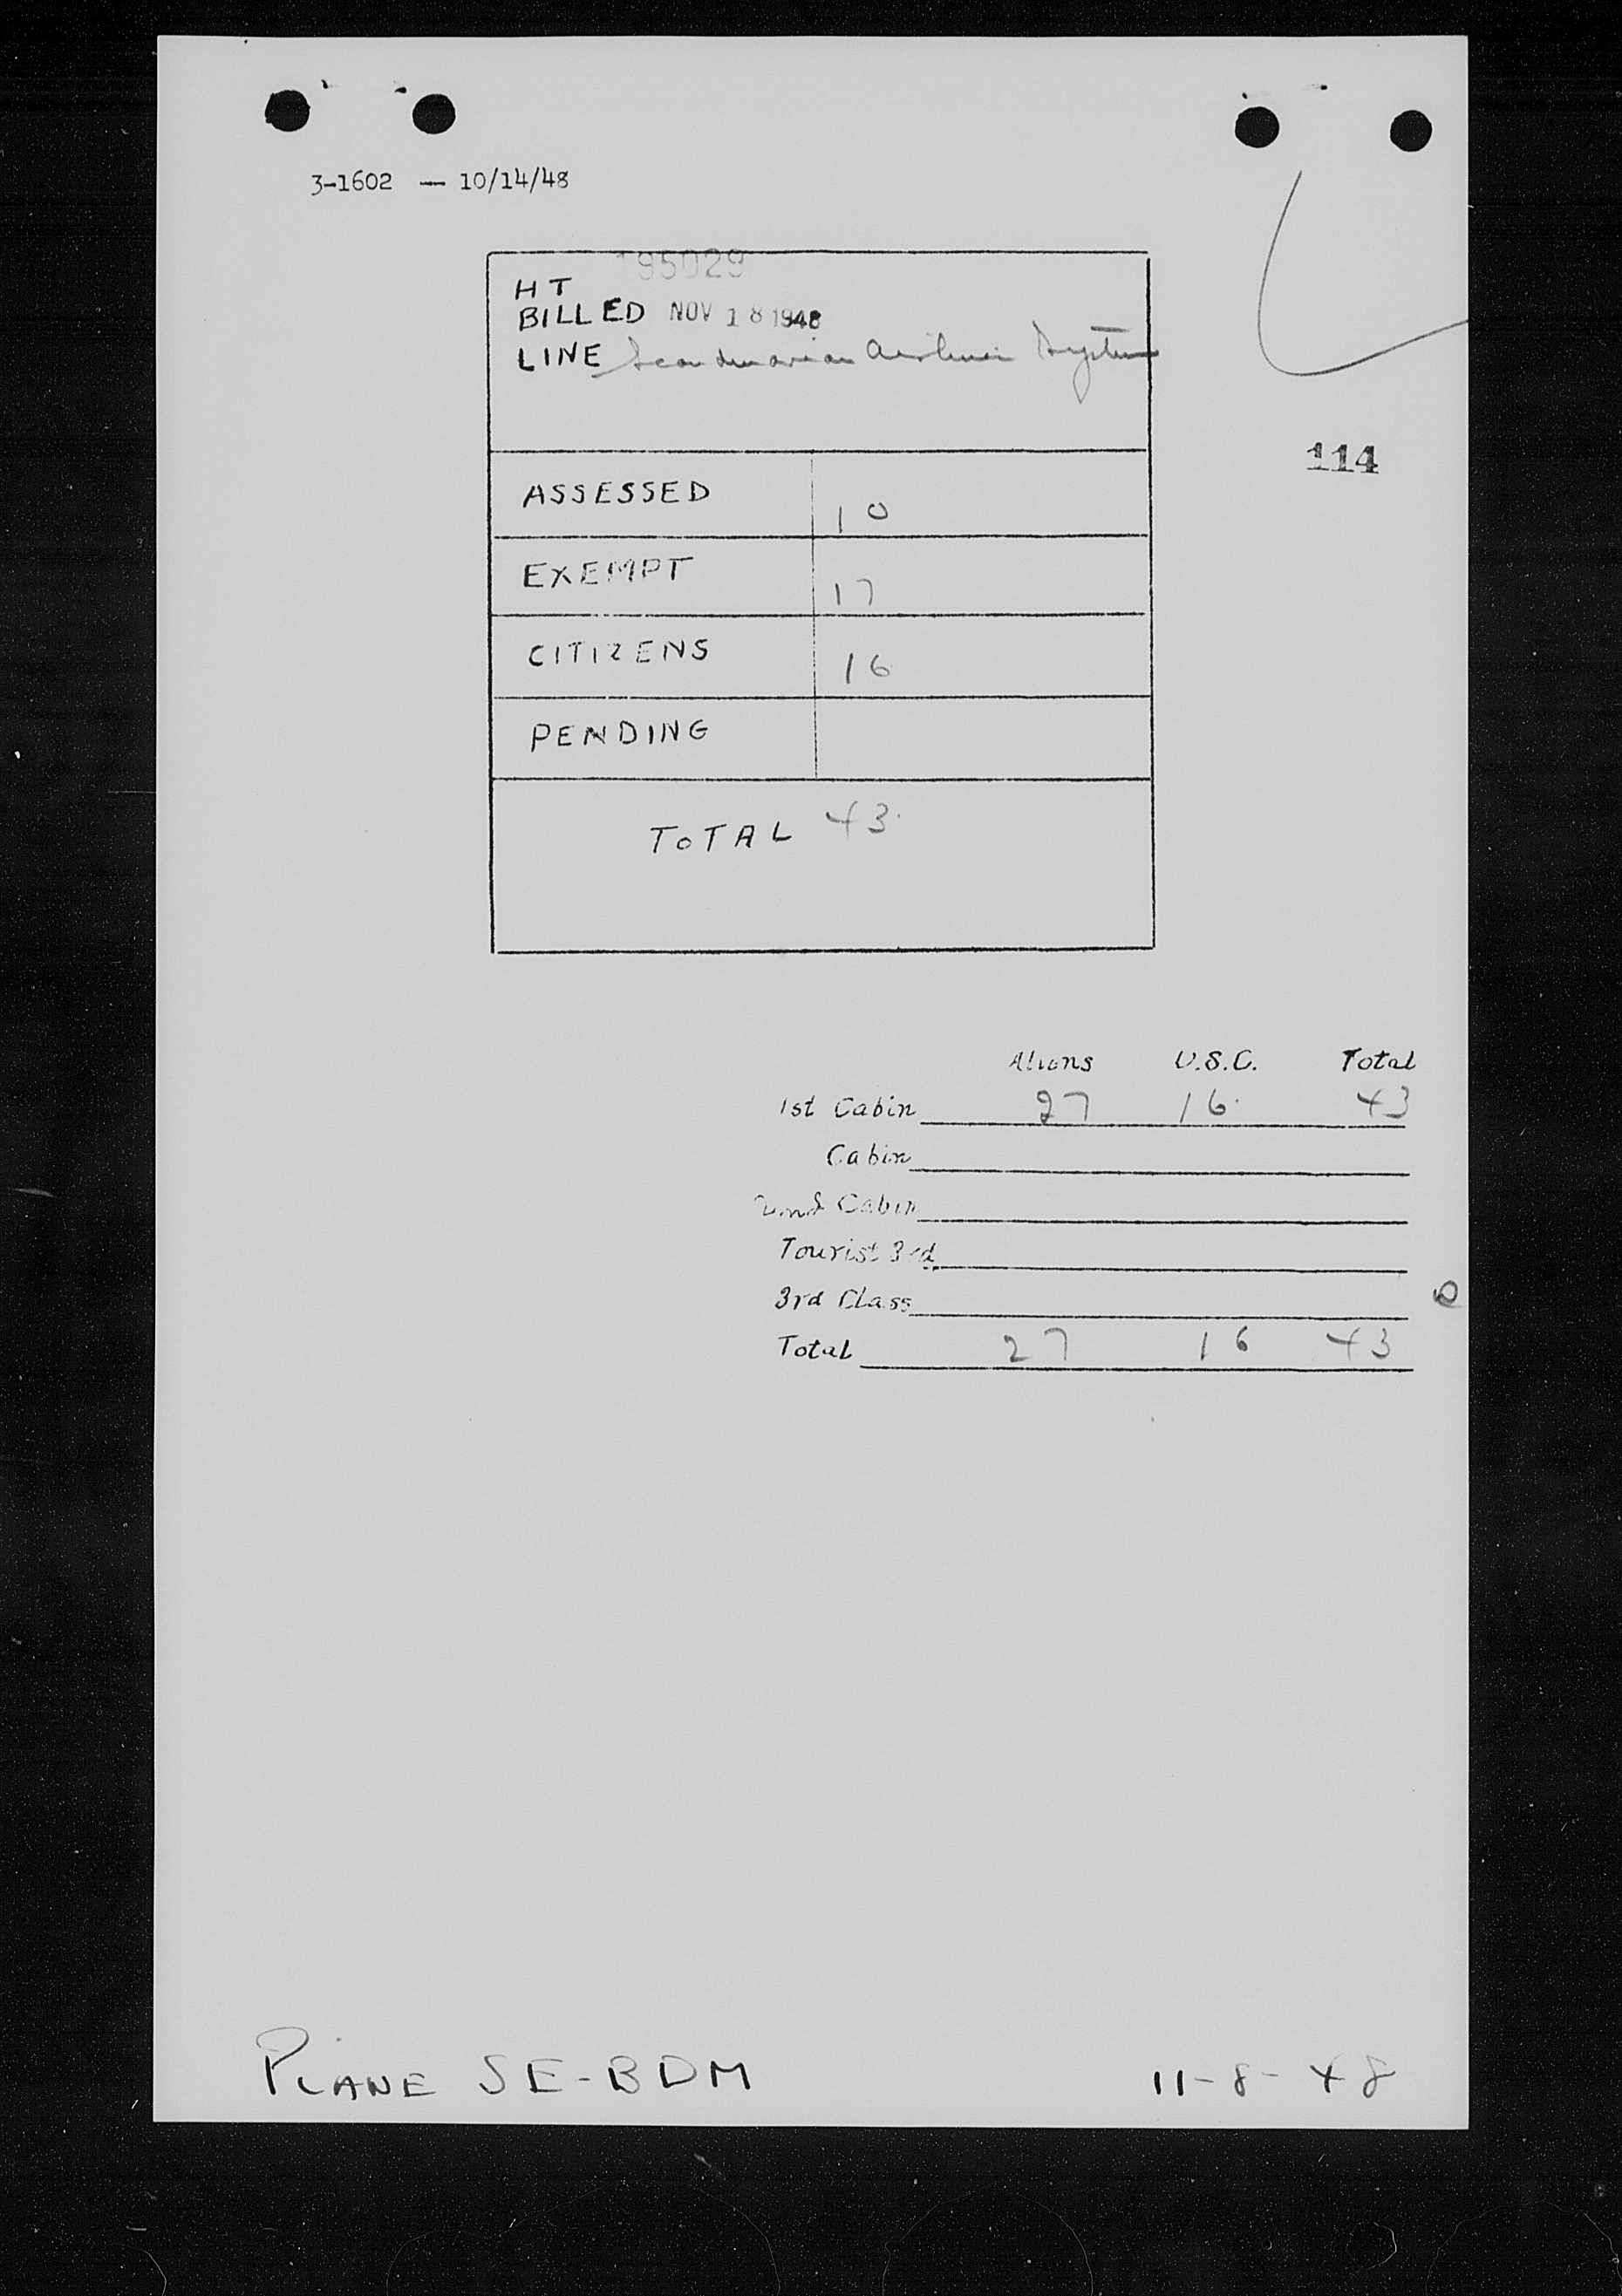 3-1602 — 10/14/48
195029
HT
BILLED NOV 18 1948
LINE Scandinavian Airlines System
114
ASSESSED 10
EXEMPT 17
CITIZENS 16
PENDING
TOTAL 43
Aliens U.S.C. Total
1st Cabin 27 16 43
Cabin
2nd Cabin
Tourist 3rd
3rd Class
Total 27 16 43
PLANE SE-BDM 11-8-48